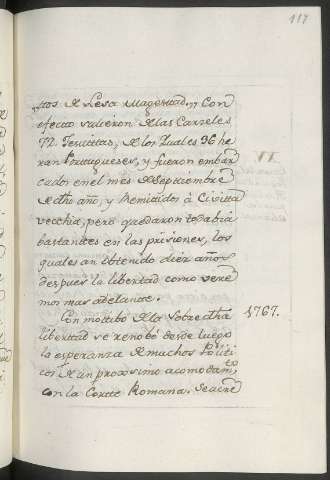 117
itos de Lesa Magestad, y Con
efecto salieron de las Carzeles
77. Jesuitas, de los Quales 36 he
ran Portugueses, y fueron embar
cados en el mes de Septiembre
de dho año, y Remitidos à Civitta
vecchia, pero quedaron todabia
bastantes en las prisiones, los
quales an obtenido diez años
despues la libertad como vere
mos mas adelante.
Con motibo de la sobredha 1767.
libertad se renobó desde luego
la esperanza de muchos Politi
cos de un procssimo acomodamto
con la Corte Romana. Se cree